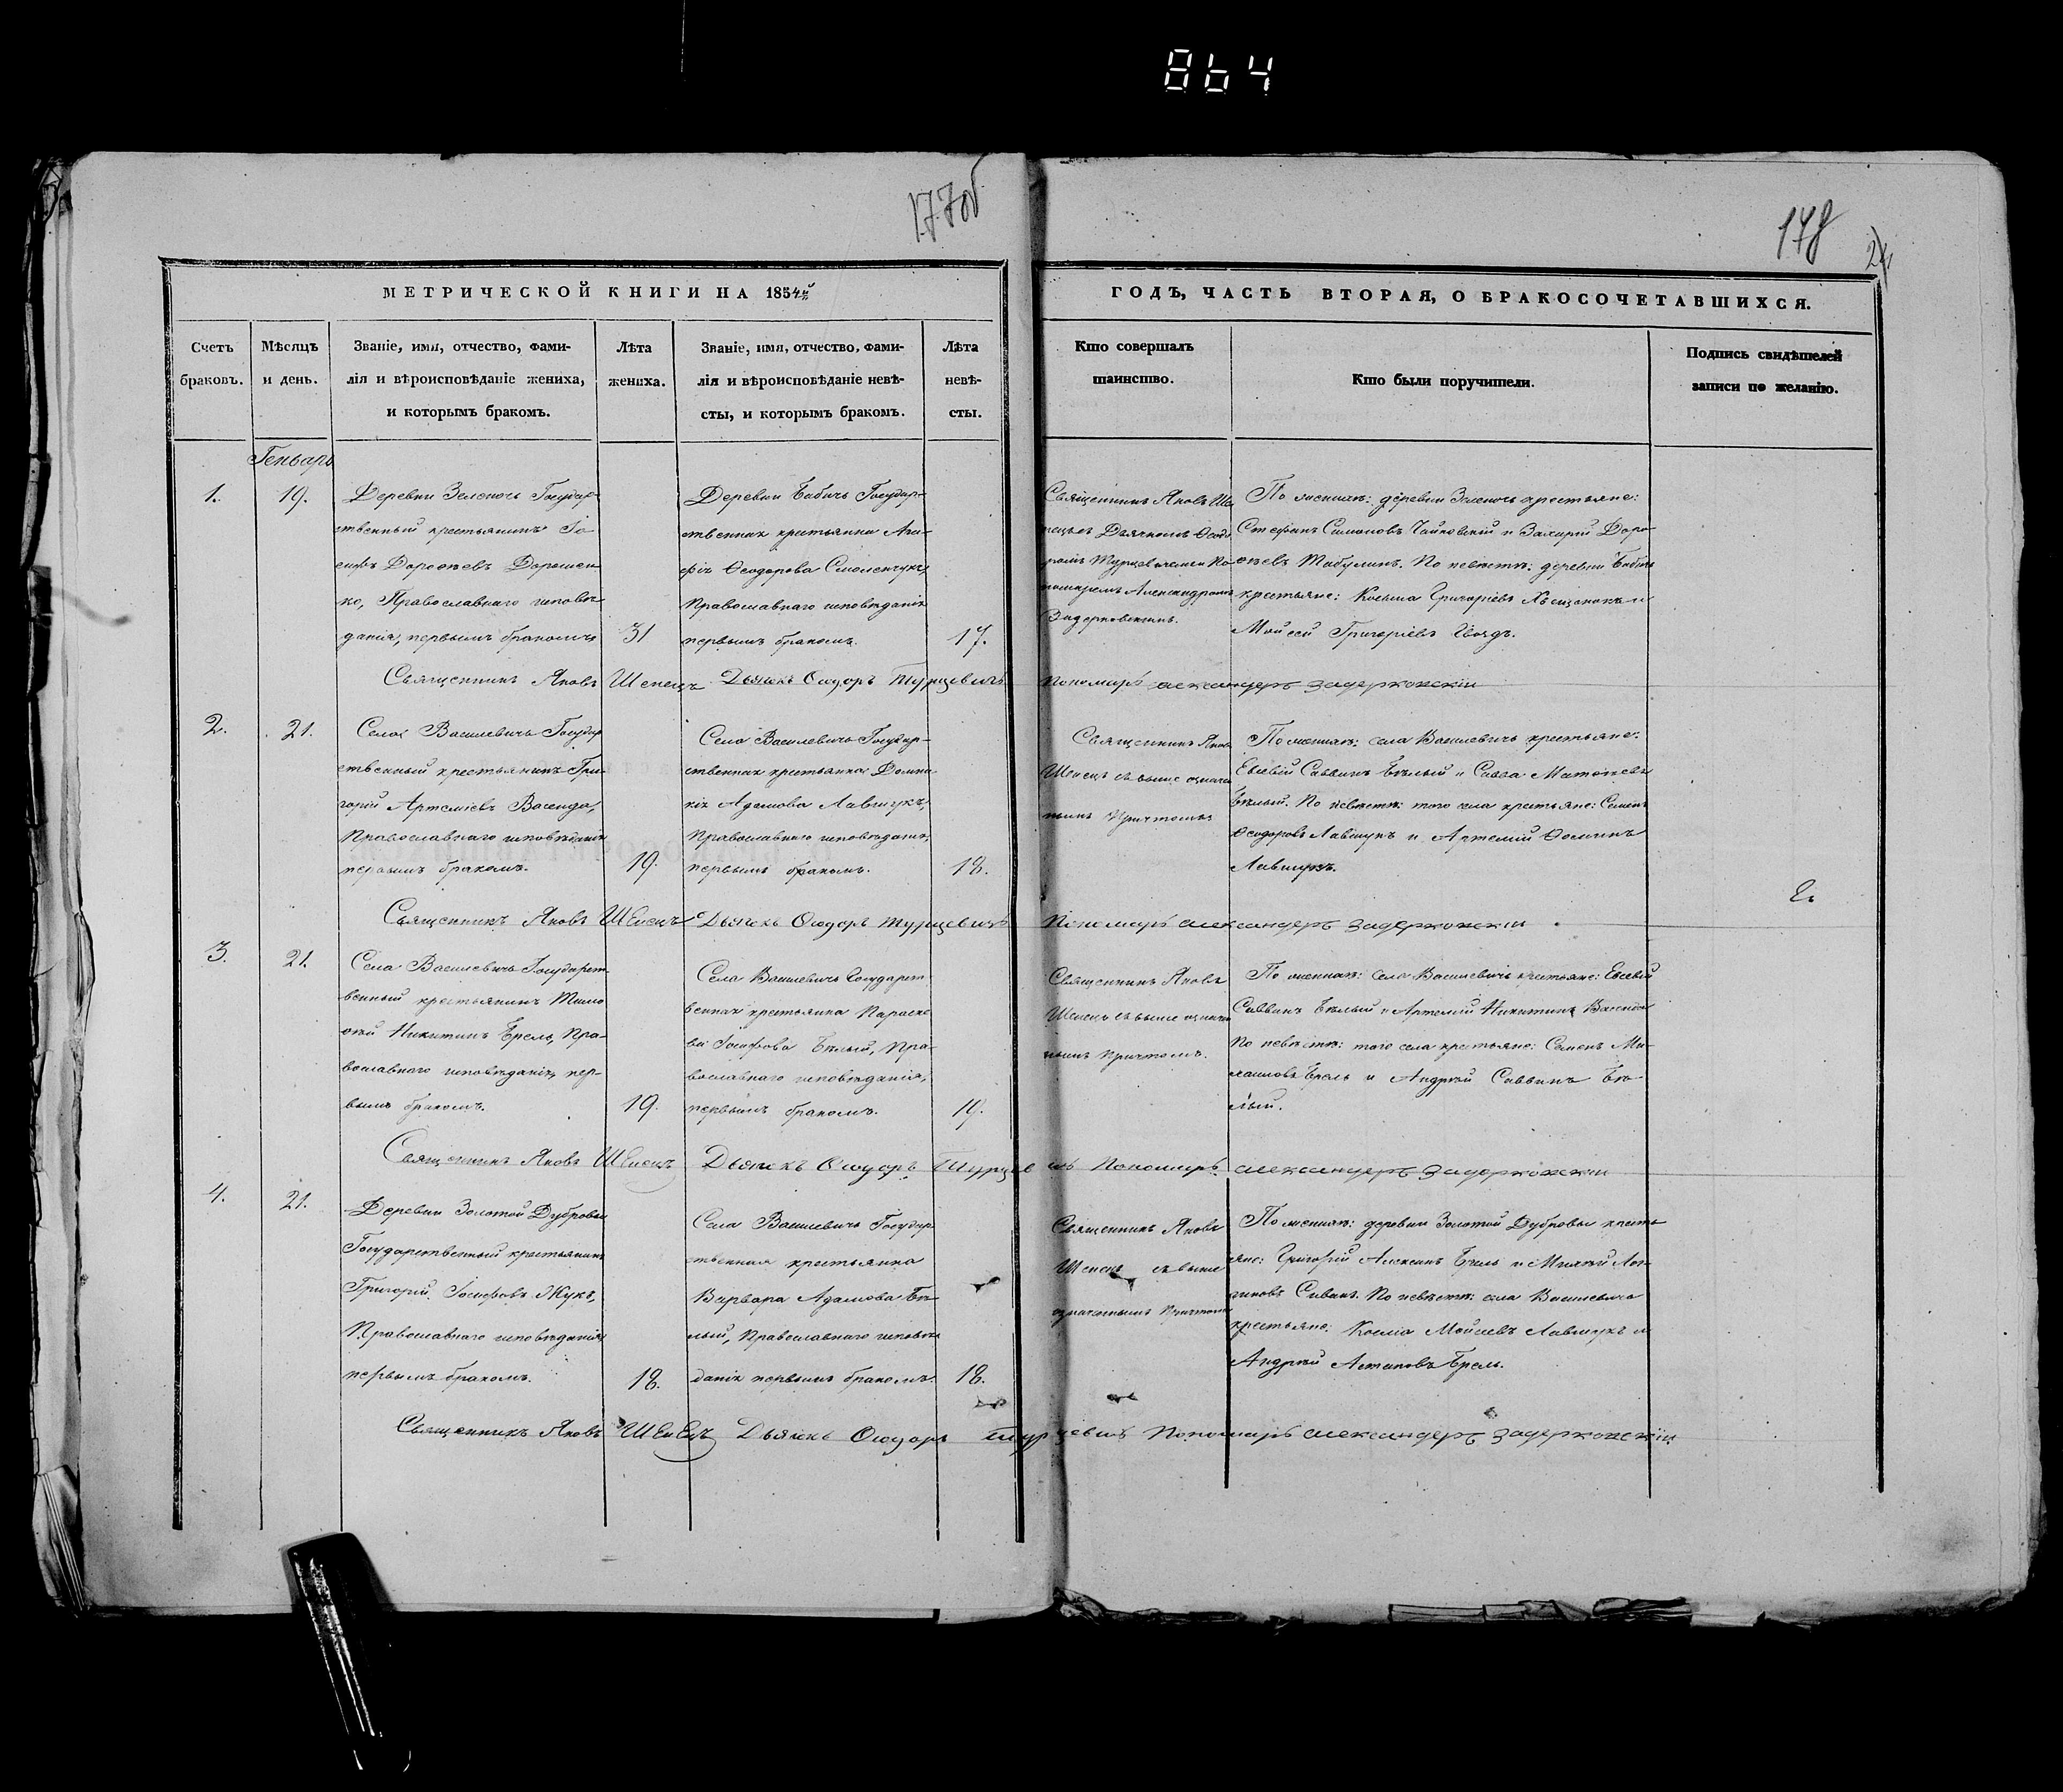 864
177об
178
24
МЕТРИЧЕСКОЙ КНИГИ НА 1854й
ГОДЪ, ЧАСТЬ ВТОРАЯ, О БРАКОСОЧЕТАВШИХСЯ.
Счетъ
браковъ.
Мѣсяцъ
и день.
Званіе, имя, отчество, фами-
лія и вѣроисповѣданіе жениха,
и которымъ бракомъ.
Лѣта
жениха.
Званіе, имя, отчество, фами-
лія и вѣроисповѣданіе невѣ-
сты, и которымъ бракомъ.
Лѣта
невѣ-
сты.
Кто совершалъ
таинство.
Кто были поручители.
Подпись свидѣтелей
записи по желанію.
Генварь
1.
19.
Деревни Зеленочь Государ-
ственный крестьянинъ Іо
сифъ Дороѳеевъ Дорошен
ко, Православнаго исповѣ
данія, первымъ бракомъ
31
Деревни Бабичь Государ-
ственная крестьянка Ага-
фія Ѳеодорова Смоленчукъ,
Православнаго исповѣданія
первымъ бракомъ.
17.
Священникъ Яковъ Ше
пецъ съ Дьячкомъ Ѳеодо
ромъ Турцевичемъ и По
номаремъ Александромъ
Задерковскимъ.
По женихѣ: деревни Зеленочь крестьяне:
Стефанъ Симоновъ Чайковскій и Захарій Доро-
ѳеевъ Табулинъ. По невѣстѣ: деревни Бабичь
крестьяне: Косьма Григоріевъ и
Мойсей Григоріевъ Гвоздь.
Священникъ Яковъ Шепецъ Дьячекъ Ѳеодоръ Турцевичъ Пономарь александеръ задерковскіи
2.
21.
Села Василевичь Государ
ственный крестьянинъ Гри
горій Артеміевъ Васенда,
Православнаго исповѣданія
первымъ бракомъ.
19.
Села Василевичь Государ-
ственная крестьянка Домни
кія Адамова Лавшукъ,
Православнаго исповѣданія,
первымъ бракомъ.
18.
Священникъ Яковъ
Шепецъ съ выше означен
нымъ Причтомъ
По женихѣ: села Василевичь крестьяне:
Евсевій Саввинъ Бѣлый и Савва Матѳеевъ
Бѣлый. По невѣстѣ: того села крестьяне: Семенъ
Ѳеодоровъ Лавшукъ и Артемій Ѳоминъ
Лавшукъ.
2.
Священникъ Яковъ Шепецъ Дьячекъ Ѳеодоръ Турцевичъ Пономарь александеръ задерковскіи
3.
21.
Села Василевичь Государст-
венный крестьянинъ Тимо
ѳей Никитинъ Брель, Пра-
вославнаго исповѣданія, пер-
вымъ бракомъ.
19.
Села Василевичь Государст
венная крестьянка Параске
ва Іосифова Бѣлый, Пра-
вославнаго исповѣданія,
первымъ бракомъ.
19.
Священникъ Яковъ
Шепецъ съ выше означен
нымъ Причтомъ.
По женихѣ: села Василевичь крестьяне: Евсевій
Саввинъ Бѣлый и Артемій Никитинъ Васенда
По невѣстѣ: того села крестьяне: Семенъ Ми-
хаиловъ Брель и Андрей Саввинъ Бѣ-
лый.
Священникъ Яковъ Шепецъ Дьячекъ Ѳеодоръ Турцевичъ Пономарь александеръ задерковскіи
4.
21.
Деревни Золотой Дубровы
Государственный крестьянинъ
Григорій Іосифовъ Жукъ,
Православнаго исповѣданія
первымъ бракомъ.
18.
Села Василевичь Государ
ственная крестьянка
Варвара Адамова Бѣ-
лый, Православнаго исповѣ
данія первымъ бракомъ.
18.
Священникъ Яковъ
Шепецъ съ выше
означеннымъ Причтомъ
По женихѣ: деревни Золотой Дубровы кресть
яне: Григорій Алексинъ Брель и Михей Лог-
гиновъ Сивакъ. По невѣстѣ: села Василевичь
крестьяне: Косма Мойсеевъ Лавшукъ и
Андрей Астаповъ Брель.
Священникъ Яковъ Шепецъ Дьячекъ Ѳеодоръ Турцевичъ Пономарь александеръ задерковскіи